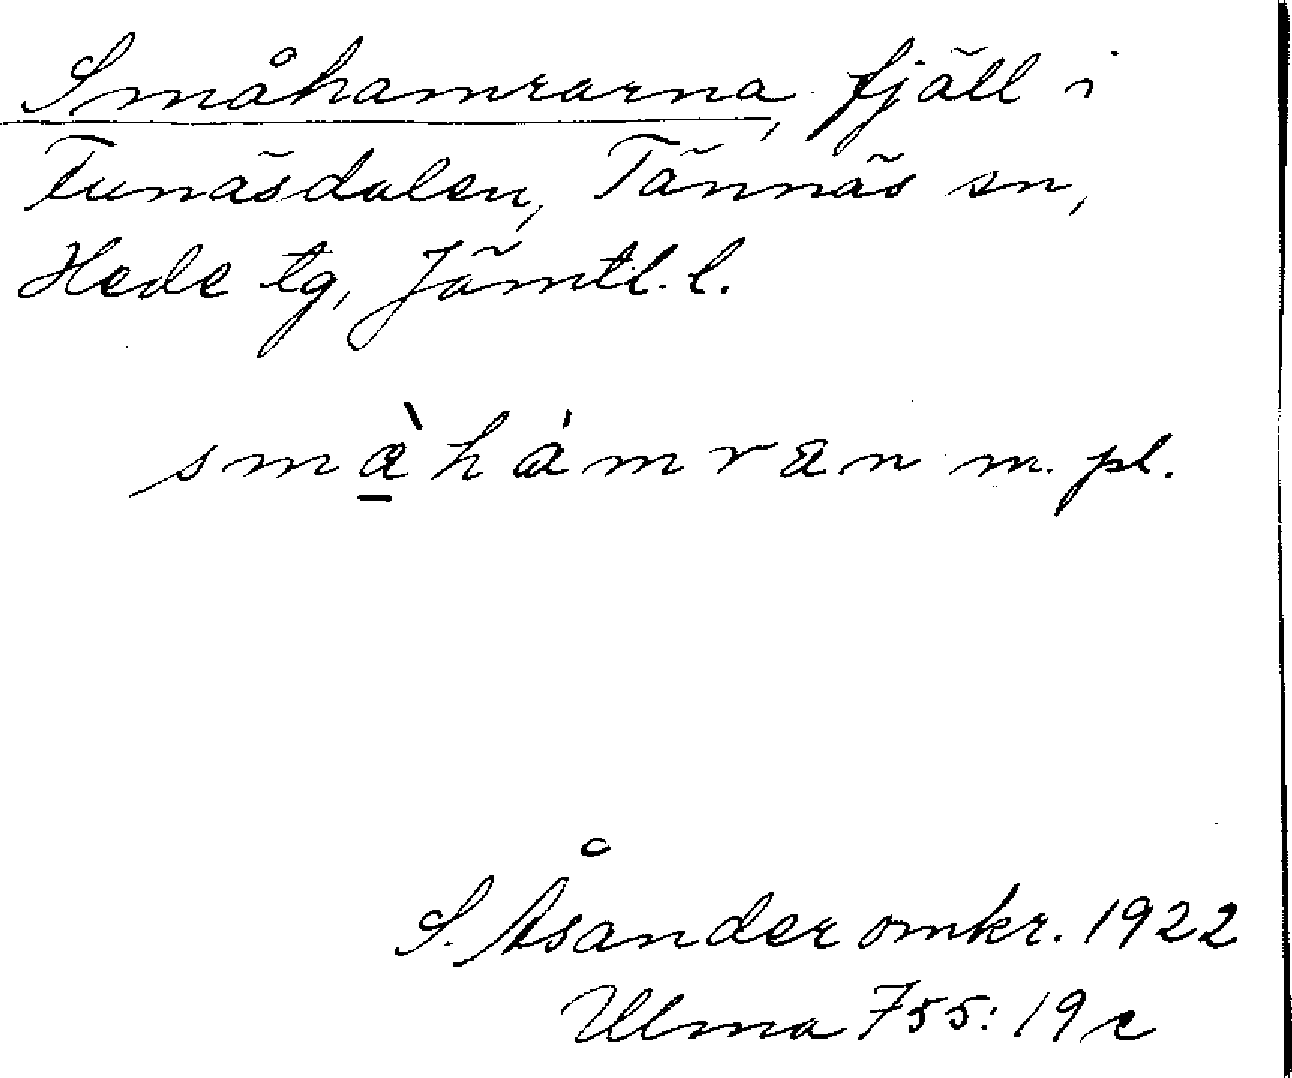 Småhamrarna, fjäll i
Funäsdalen, Tännäs sn,
Hede tg, Jämtl. l.
småhámran m. pl.
S. Åsander omkr. 1922
Ulma 755: 19 c